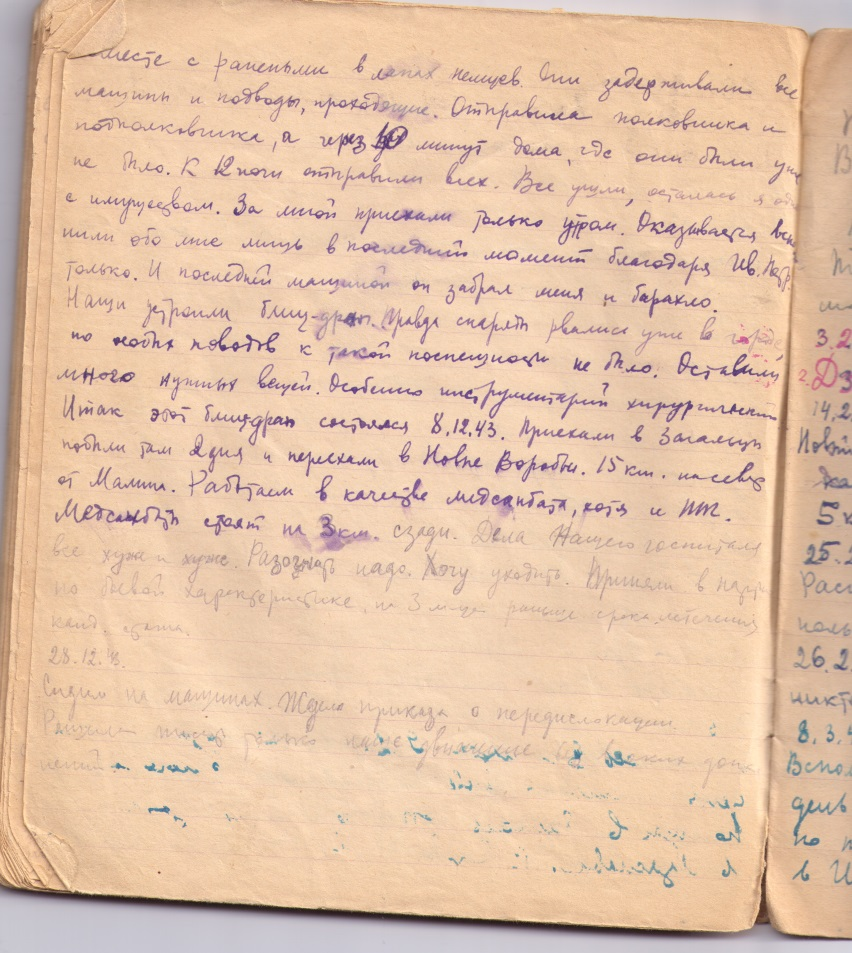 вместе с ранеными в лапах немцев. Они задерживали все
машины и подводы, проходящие. Отправила полковника и
подполковника, а через 10 минут дома, где они были уже
не было. К 12 ночи отправили всех. Все ушли, осталась я одна
с имуществом. За мной приехали только утром. Оказывается вспом
нили обо мне лишь в последний момент благодаря Ив. Петр.
только. И последней машиной он забрал меня и барахло.
Наши устроили блиц-драп. Правда снаряды рвались уже в городе
но особых поводов к такой поспешности не было. Оставили
много нужных вещей. Особенно инструментарий хирургический
Итак этот блицдрап состоялся 8.12.43. Приехали в Загальцы
побыли там 2 дня и переехали в Новые Воробьи. 15 км. на север
от Малин. Работаем в качестве медсанбата, хотя и ППГ.
Медсанбаты стоят на 3 км. сзади. Дела Нашего госпиталя
все хуже и хуже. Разогнать надо. Хочу уходить. Приняли в парт.
по боевой характеристике, на 3 месяца раньше срока истечения
канд. стажа.
28.12.43.
Сидим на машинах. Ждем приказа о передислокации.
только наше движение без всяких
3.2
2.
14.2
5 к
25.2
26.2
никто
8.3.4
Вспом
день
по
в